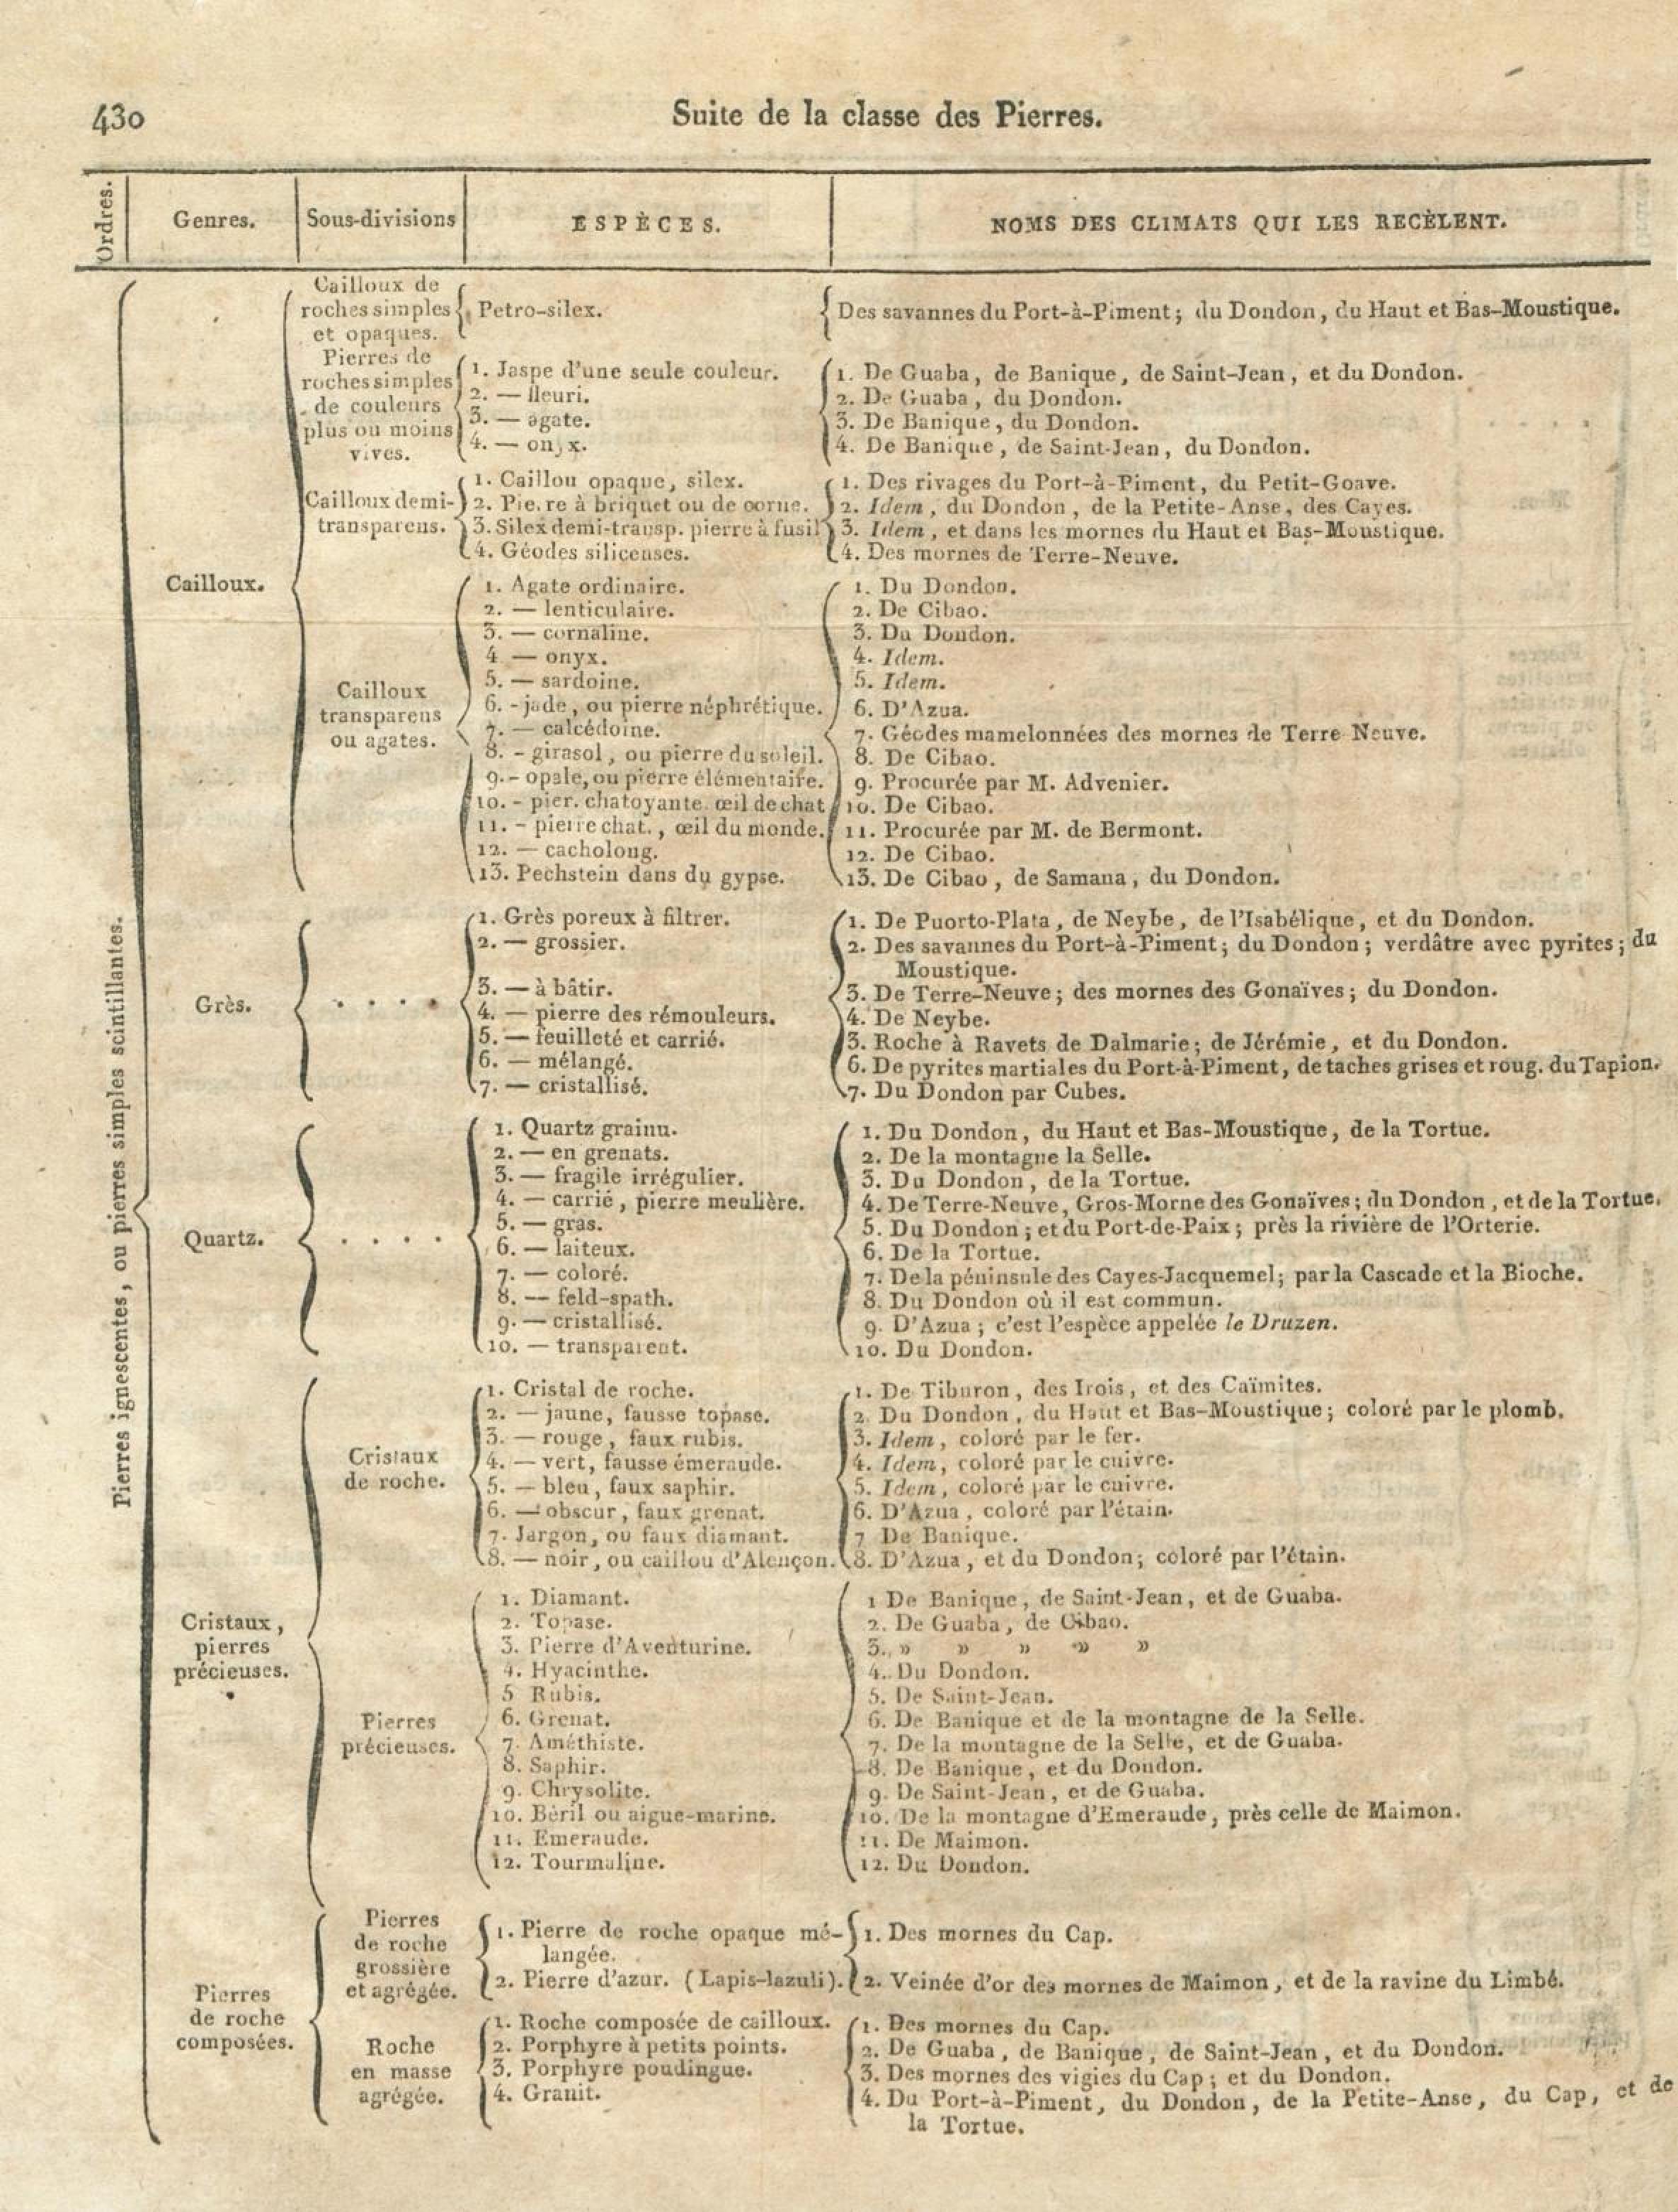 430
Suite de la classe des Pierres.
Ordres.
Genres.
Sous-divisions
ESPÈCES.
NOMS DES CLIMATS QUI LES RECÈLENT.
Pierres ignescentes, ou pierres simples scintillantes.
Cailloux.
Cailloux de
roches simples
et opaques.
Petro-silex.
Des savannes du Port-à-Piment; du Dondon, du Haut et Bas-Moustique.
Pierres de
roches simples
de couleurs
plus ou moins
vives.
1. Jaspe d'une seule couleur.
2. — fleuri.
3. — agate.
4. — onyx.
1. De Guaba, de Banique, de Saint-Jean, et du Dondon.
2. De Guaba, du Dondon.
3. De Banique, du Dondon.
4. De Banique, de Saint-Jean, du Dondon.
Cailloux demi-
transparens.
1. Caillou opaque, silex.
2. Pierre à briquet ou de corne.
3. Silex demi-transp. pierre à fusil
4. Géodes siliceuses.
1. Des rivages du Port-à-Piment, du Petit-Goave.
2. Idem, du Dondon, de la Petite-Anse, des Cayes.
3. Idem, et dans les mornes du Haut et Bas-Moustique.
4. Des mornes de Terre-Neuve.
Cailloux
transparens
ou agates.
1. Agate ordinaire.
2. — lenticulaire.
3. — cornaline.
4 — onyx.
5. — sardoine.
6. - jade, ou pierre néphrétique.
7. — calcédoine.
8. - girasol, ou pierre du soleil.
9. - opale, ou pierre élémentaire.
10. - pier. chatoyante œil de chat
11. - pierre chat., œil du monde.
12. — cacholong.
13. Pechstein dans du gypse.
1. Du Dondon.
2. De Cibao.
3. Du Dondon.
4. Idem.
5. Idem.
6. D'Azua.
7. Géodes mamelonnées des mornes de Terre Neuve.
8. De Cibao.
9. Procurée par M. Advenier.
10. De Cibao.
11. Procurée par M. de Bermont.
12. De Cibao.
13. De Cibao, de Samana, du Dondon.
Grès.
. . . .
1. Grès poreux à filtrer.
2. — grossier.
3. — à bâtir.
4. — pierre des rémouleurs.
5. — feuilleté et carrié.
6. — mélangé.
7. — cristallisé.
1. De Puorto-Plata, de Neybe, de l'Isabélique, et du Dondon.
2. Des savannes du Port-à-Piment; du Dondon; verdâtre avec pyrites; du
Moustique.
3. De Terre-Neuve; des mornes des Gonaïves; du Dondon.
4. De Neybe.
3. Roche à Ravets de Dalmarie; de Jérémie, et du Dondon.
6. De pyrites martiales du Port-à-Piment, de taches grises et roug. du Tapion.
7. Du Dondon par Cubes.
Quartz.
. . . .
1. Quartz grainu.
2. — en grenats.
3. — fragile irrégulier.
4. — carrié, pierre meulière.
5. — gras.
6. — laiteux.
7. — coloré.
8. — feld-spath.
9. — cristallisé.
10. — transparent.
1. Du Dondon, du Haut et Bas-Moustique, de la Tortue.
2. De la montagne la Selle.
3. Du Dondon, de la Tortue.
4. De Terre-Neuve, Gros-Morne des Gonaïves; du Dondon, et de la Tortue.
5. Du Dondon; et du Port-de-Paix; près la rivière de l'Orterie.
6. De la Tortue.
7. De la péninsule des Cayes-Jacquemel; par la Cascade et la Bioche.
8. Du Dondon où il est commun.
9. D'Azua; c'est l'espèce appelée le Druzen.
10. Du Dondon.
Cristaux,
pierres
précieuses.
Cristaux
de roche.
1. Cristal de roche.
2. — jaune, fausse topase.
3. — rouge, faux rubis.
4. — vert, fausse émeraude.
5. — bleu, faux saphir.
6. — obscur, faux grenat.
7. Jargon, ou faux diamant.
8. — noir, ou caillou d'Alençon.
1. De Tiburon, des Irois, et des Caïmites.
2. Du Dondon, du Haut et Bas-Moustique; coloré par le plomb.
3. Idem, coloré par le fer.
4. Idem, coloré par le cuivre.
5. Idem, coloré par le cuivre.
6. D'Azua, coloré par l'étain.
7 De Banique.
8. D'Azua, et du Dondon; coloré par l'étain.
Pierres
précieuses.
1. Diamant.
2. Topase.
3. Pierre d'Aventurine.
4. Hyacinthe.
5 Rubis.
6. Grenat.
7. Améthiste.
8. Saphir.
9. Chrysolite.
10. Béril ou aigue-marine.
11. Emeraude.
12. Tourmaline.
1 De Banique, de Saint-Jean, et de Guaba.
2. De Guaba, de Cibao.
3. » » » » »
4. Du Dondon.
5. De Saint-Jean.
6. De Banique et de la montagne de la Selle.
7. De la montagne de la Selle, et de Guaba.
8. De Banique, et du Dondon.
9. De Saint-Jean, et de Guaba.
10. De la montagne d'Emeraude, près celle de Maimon.
11. De Maimon.
12. Du Dondon.
Pierres
de roche
composées.
Pierres
de roche
grossière
et agrégée.
1. Pierre de roche opaque mé-
langée.
2. Pierre d'azur. (Lapis-lazuli).
1. Des mornes du Cap.
2. Veinée d'or des mornes de Maimon, et de la ravine du Limbé.
Roche
en masse
agrégée.
1. Roche composée de cailloux.
2. Porphyre à petits points.
3. Porphyre poudingue.
4. Granit.
1. Des mornes du Cap.
2. De Guaba, de Banique, de Saint-Jean, et du Dondon.
3. Des mornes des vigies du Cap; et du Dondon.
4. Du Port-à-Piment, du Dondon, de la Petite-Anse, du Cap, et de
la Tortue.